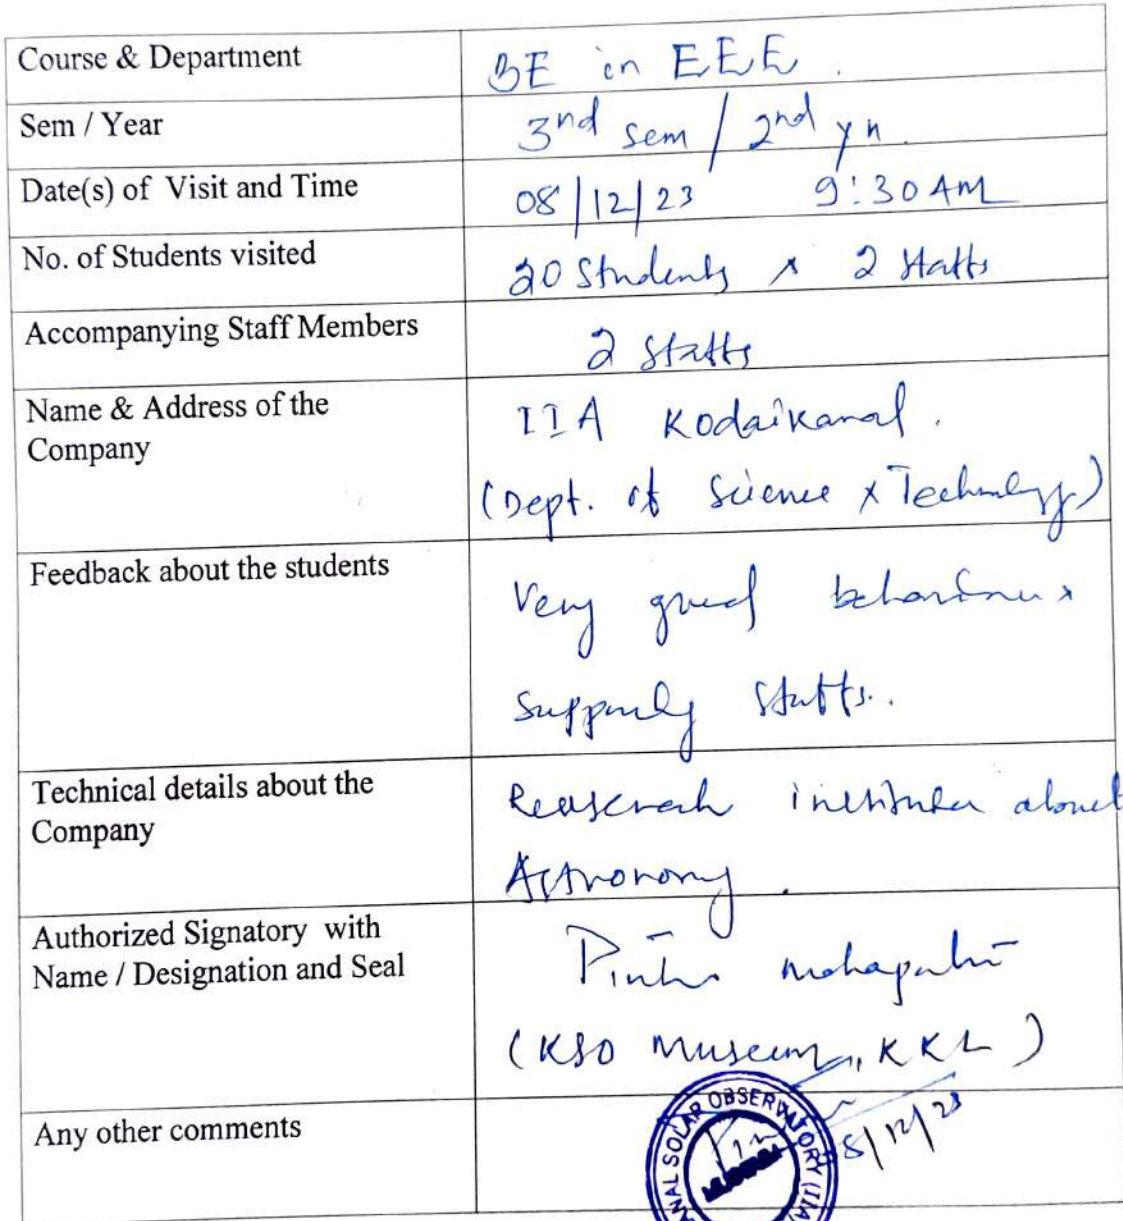 Course & Department
BE in EEE.
Sem / Year
3nd sem / 2nd yr.
Date(s) of Visit and Time
08/12/23 9:30 AM
No. of Students visited
20 Students & 2 Staffs
Accompanying Staff Members
2 Staffs
Name & Address of the
Company
IIA Kodaikanal.
(Dept. of Science & Technology)
Feedback about the students
Very good behaviour &
Staffs.
Technical details about the
Company
about
Astronomy.
Authorized Signatory with
Name / Designation and Seal
mahapatra
(KSO Museum, KKL)
Any other comments
8/12/23
SOLAR OBSERVATORY (IIA)